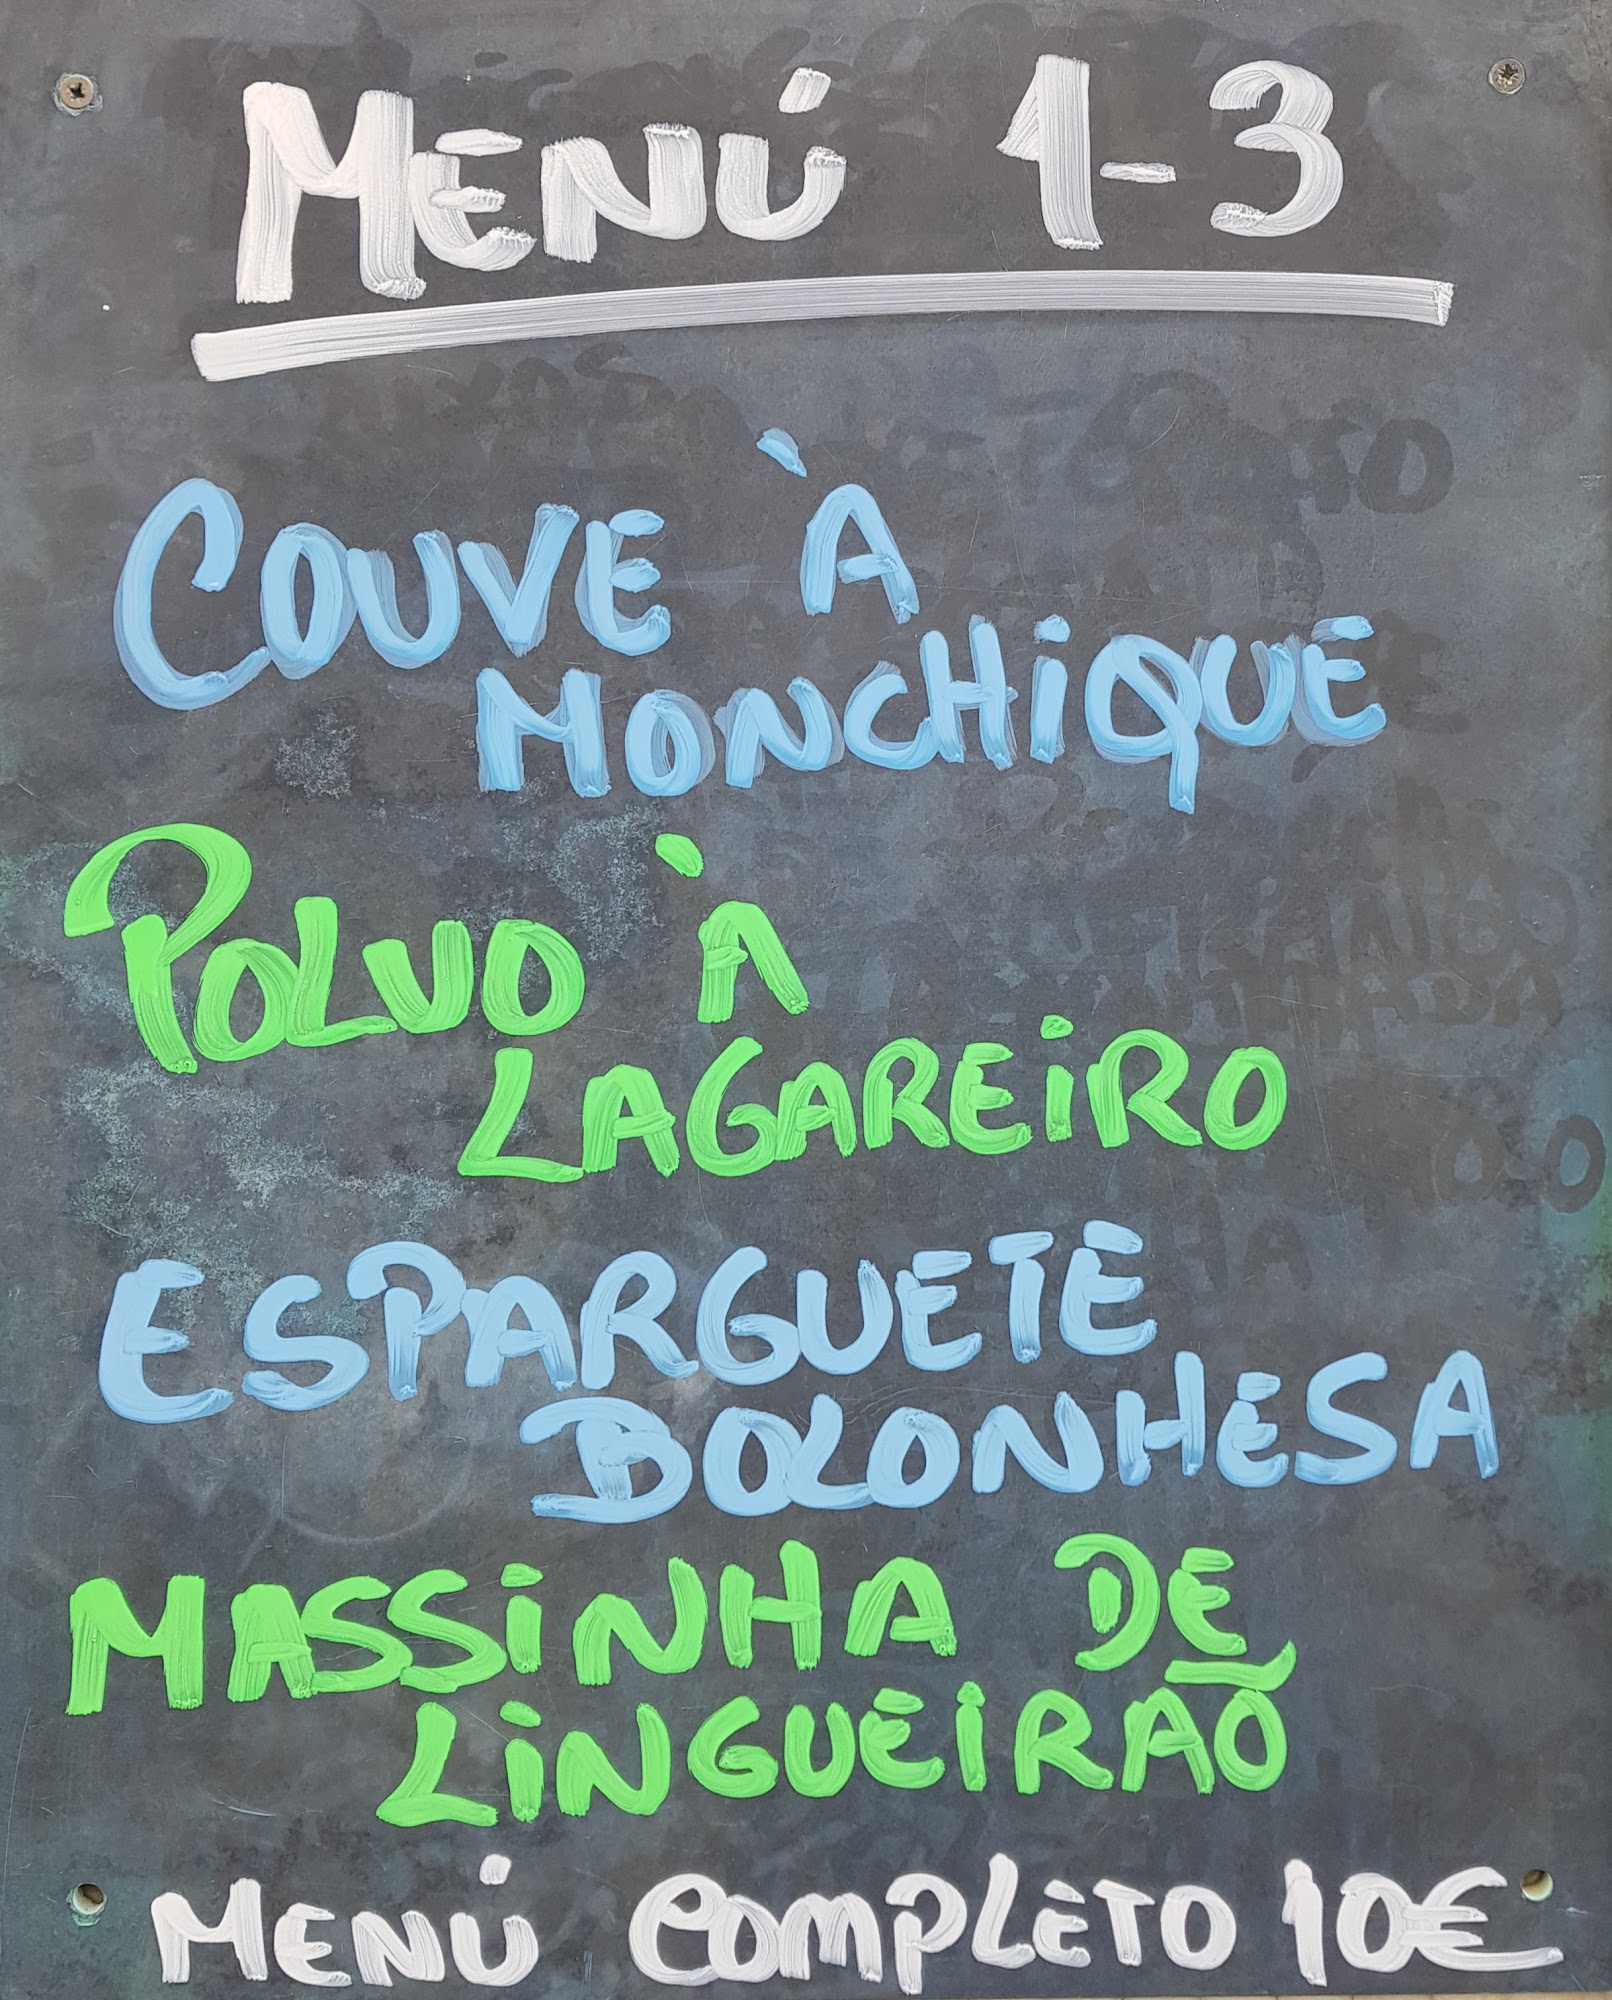 MENÚ 1-3
COUVE À
MONCHIQUE
POLVO À
LAGAREIRO
ESPARGUETE
BOLONHESA
MASSINHA DE
LINGUEIRÃO
MENÚ COMPLETO 10€